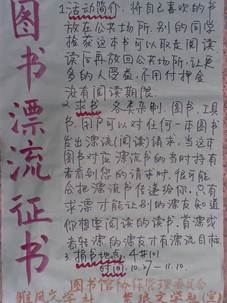 图书漂流征书
1.活动简介:将自己喜欢的书
放在公共场所,别的同学
捡获这本书可以取走阅读
读后再放回公共场所,让更
多的人受益,不用付押金
没有阅读期限
2.求书:各类杂志、图书、工具
书,用户可以对任何一本图书
发出漂流(阅读)请求,当这本
图书对应漂流书的当时持有
者看到您的请求时,很可能
会把漂流书传递给你,只有
求漂才能让别的漂友知道
你想要阅读的读书,首漂或
者转漂的漂友才有漂流目标
3.捐书地点:4#101
时间:10.27—11.10.
图书馆协作管理委员会
雅风文学社